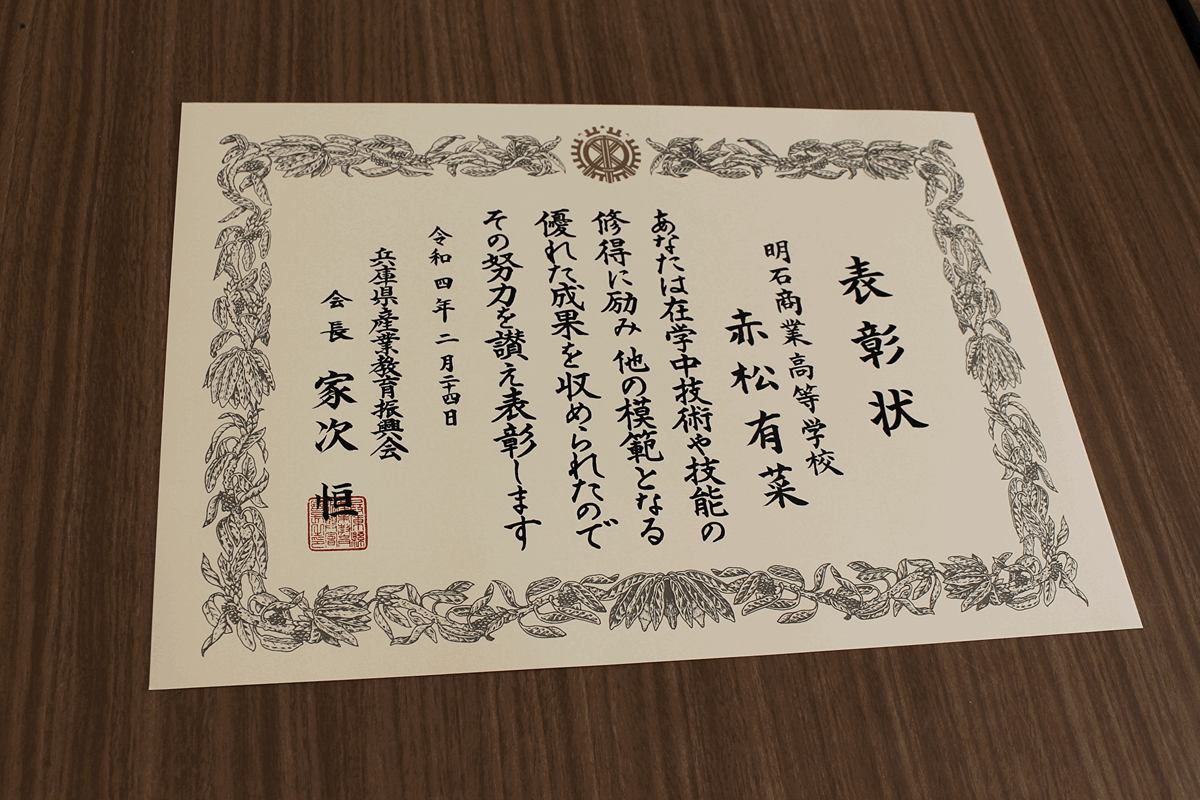 表彰状
明石商業高等学校
赤松有菜
あなたは在学中技術や技能の
修得に励み他の模範となる
優れた成果を収められたので
その努力を讃え表彰します
令和四年二月二十四日
兵庫県産業教育振興会
会長 家次 恒